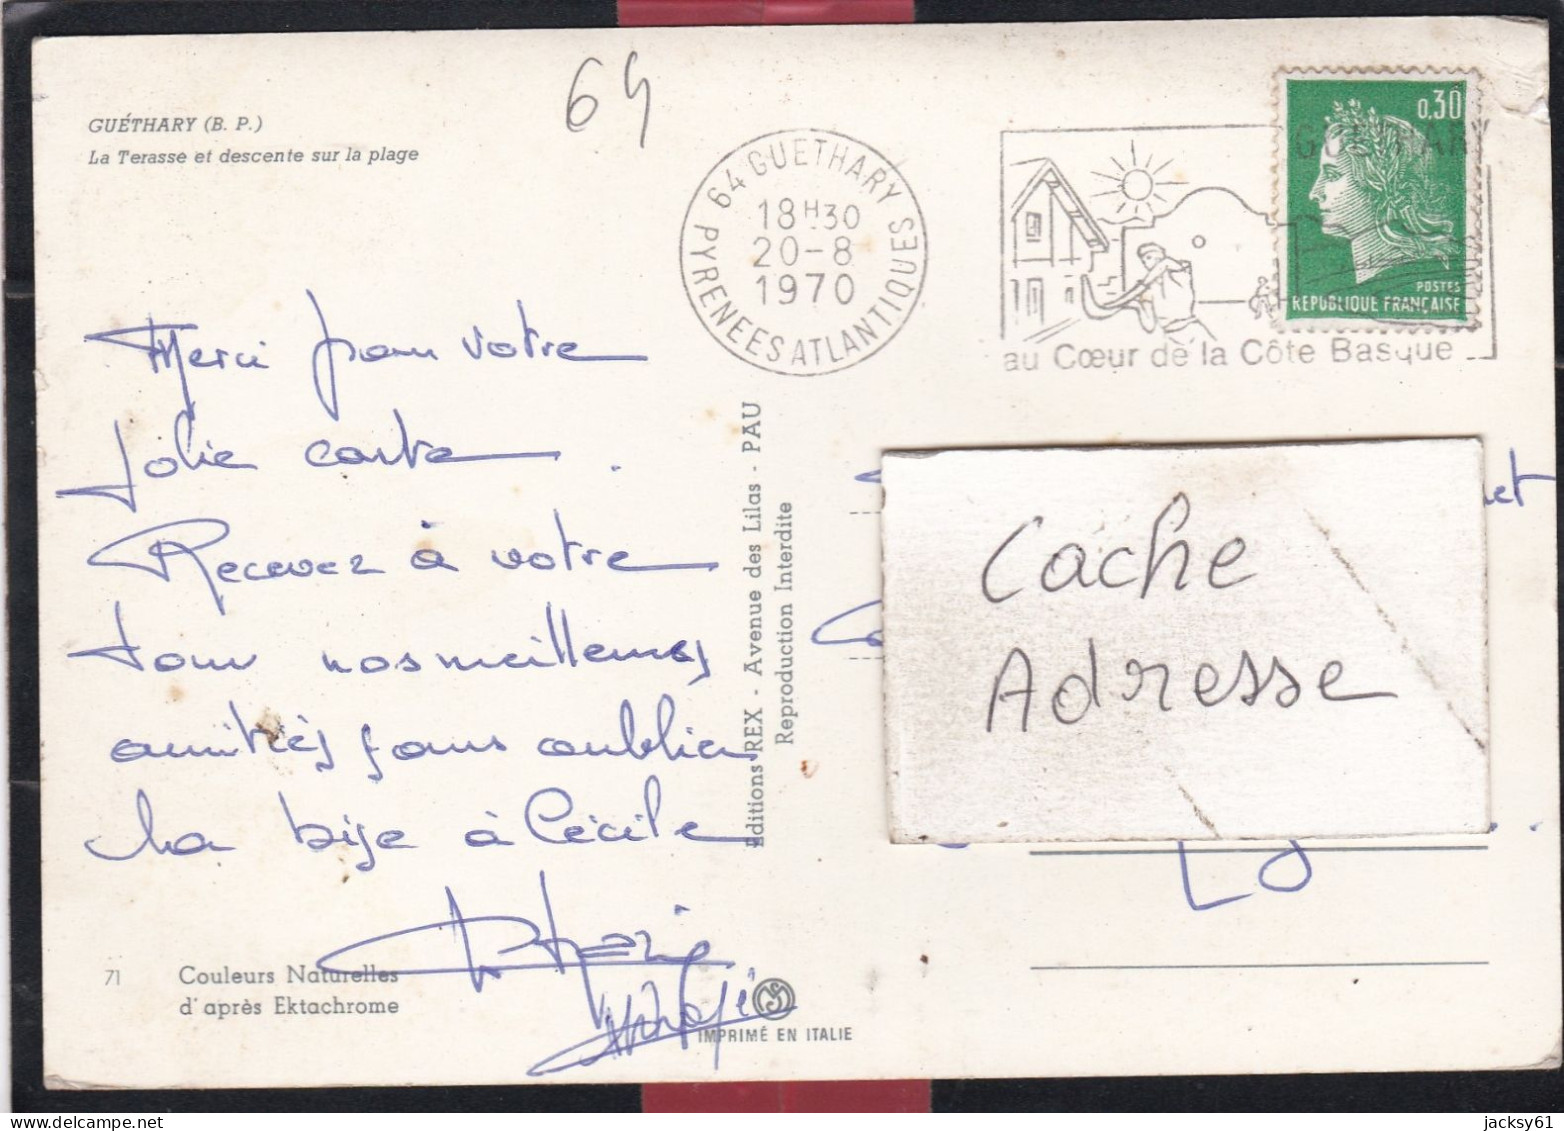 64
GUÉTHARY (B. P.)
La Terasse et descente sur la plage
64 GUETHARY
18H30
20-8
1970
PYRENEES ATLANTIQUES
GUETHARY
au Cœur de la Côte Basque
0,30
POSTES
REPUBLIQUE FRANÇAISE
Merci pour votre
jolie carte.
Recevez à votre
tour nos meilleures
amitiés sans oublier
la bise à Cécile
Editions REX - Avenue des Lilas - PAU
Reproduction Interdite
Cache
Adresse
71
Couleurs Naturelles
d'après Ektachrome
IMPRIMÉ EN ITALIE
jacksy61